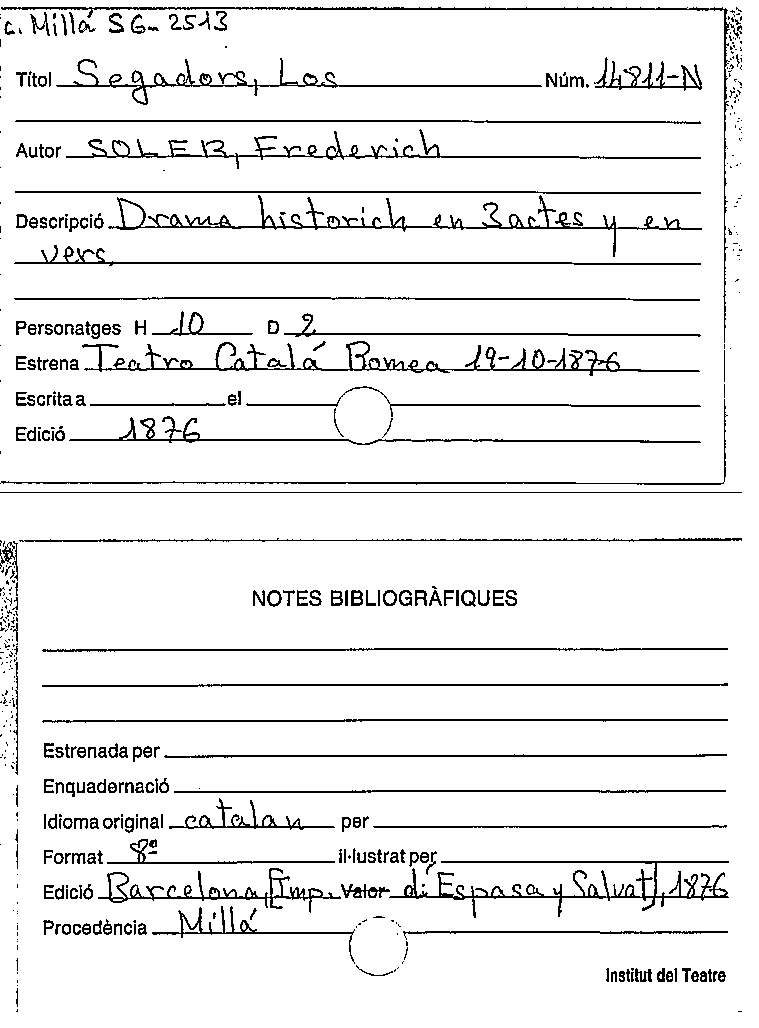 c. Millá SG-2513
Títol Segadors, Los Núm. 14811-N
Autor SOLER, Frederich
Descripció Drama historich en 3 actes y en
vers.
Personatges H 10 D 2
Estrena Teatro Catalá Romea 19-10-1876
Escrita a el
Edició 1876
NOTES BIBLIOGRÀFIQUES
Estrenada per
Enquadernació
Idioma original catalan per
Format 8º il·lustrat per
Edició Barcelona, [Imp. Valor d'Espasa y Salvat], 1876
Procedència Millá
Institut del Teatre